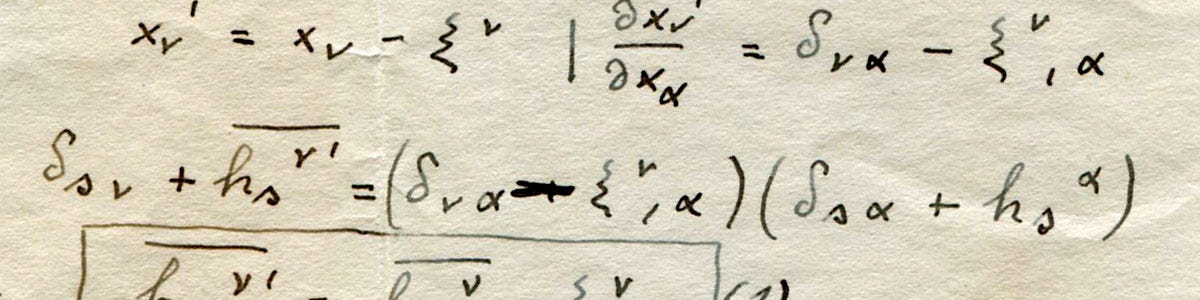 xᵥ' = xᵥ − ξ^ν | ∂xᵥ'/∂x_α = δ_να − ξ^ν_,α
δ_sν + h_s^ν' = (δ_να − ξ^ν_,α)(δ_sα + h_s^α)